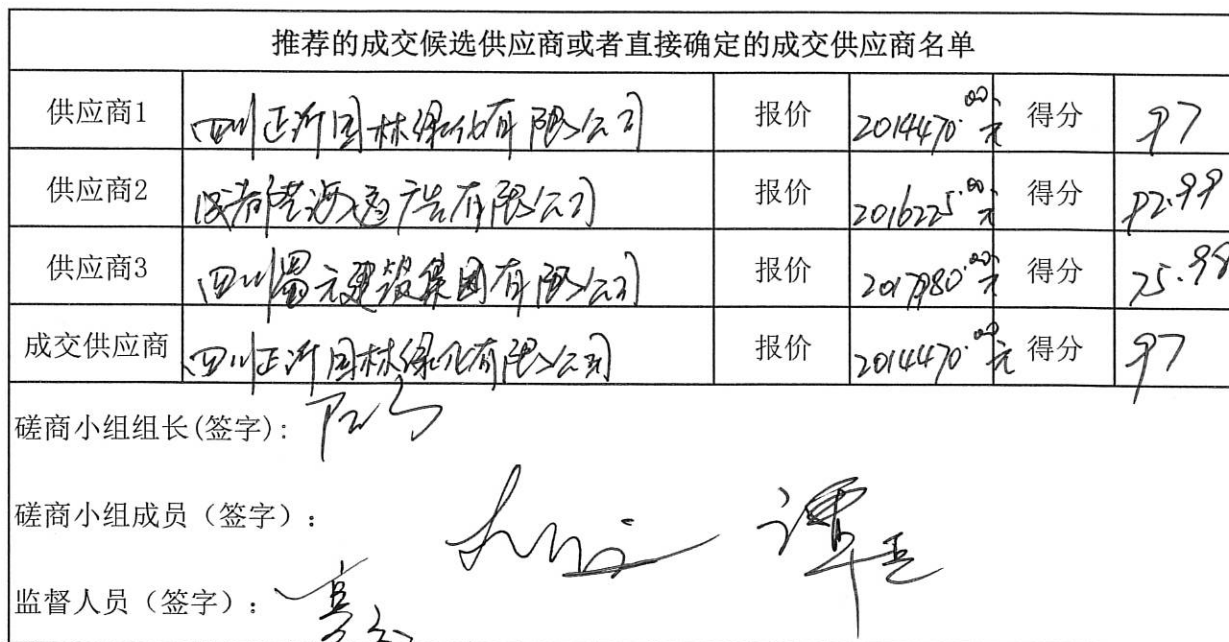 推荐的成交候选供应商或者直接确定的成交供应商名单
供应商1 四川正沂园林绿化有限公司 报价 2014470.00元 得分 97
供应商2 成都 广告有限公司 报价 2016225.00元 得分 92.99
供应商3 四川蜀元建设集团有限公司 报价 2017980.00元 得分 75.98
成交供应商 四川正沂园林绿化有限公司 报价 2014470.00元 得分 97
磋商小组组长(签字):
磋商小组成员（签字）： 谭
监督人员（签字）：